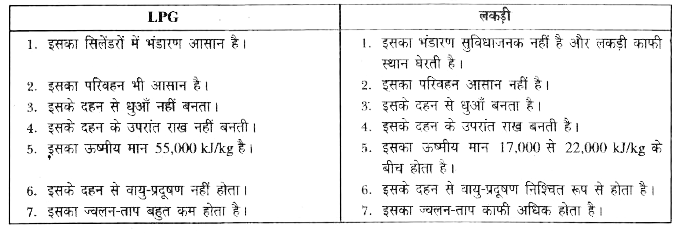 LPG
लकड़ी
1. इसका सिलेंडरों में भंडारण आसान है।
1. इसका भंडारण सुविधाजनक नहीं है और लकड़ी काफी
स्थान घेरती है।
2. इसका परिवहन भी आसान है।
2. इसका परिवहन आसान नहीं है।
3. इसके दहन से धुआँ नहीं बनता।
3. इसके दहन से धुआँ बनता है।
4. इसके दहन के उपरांत राख नहीं बनती।
4. इसके दहन के उपरांत राख बनती है।
5. इसका ऊष्मीय मान 55,000 kJ/kg है।
5. इसका ऊष्मीय मान 17,000 से 22,000 kJ/kg के
बीच होता है।
6. इसके दहन से वायु-प्रदूषण नहीं होता।
6. इसके दहन से वायु-प्रदूषण निश्चित रूप से होता है।
7. इसका ज्वलन-ताप बहुत कम होता है।
7. इसका ज्वलन-ताप काफी अधिक होता है।